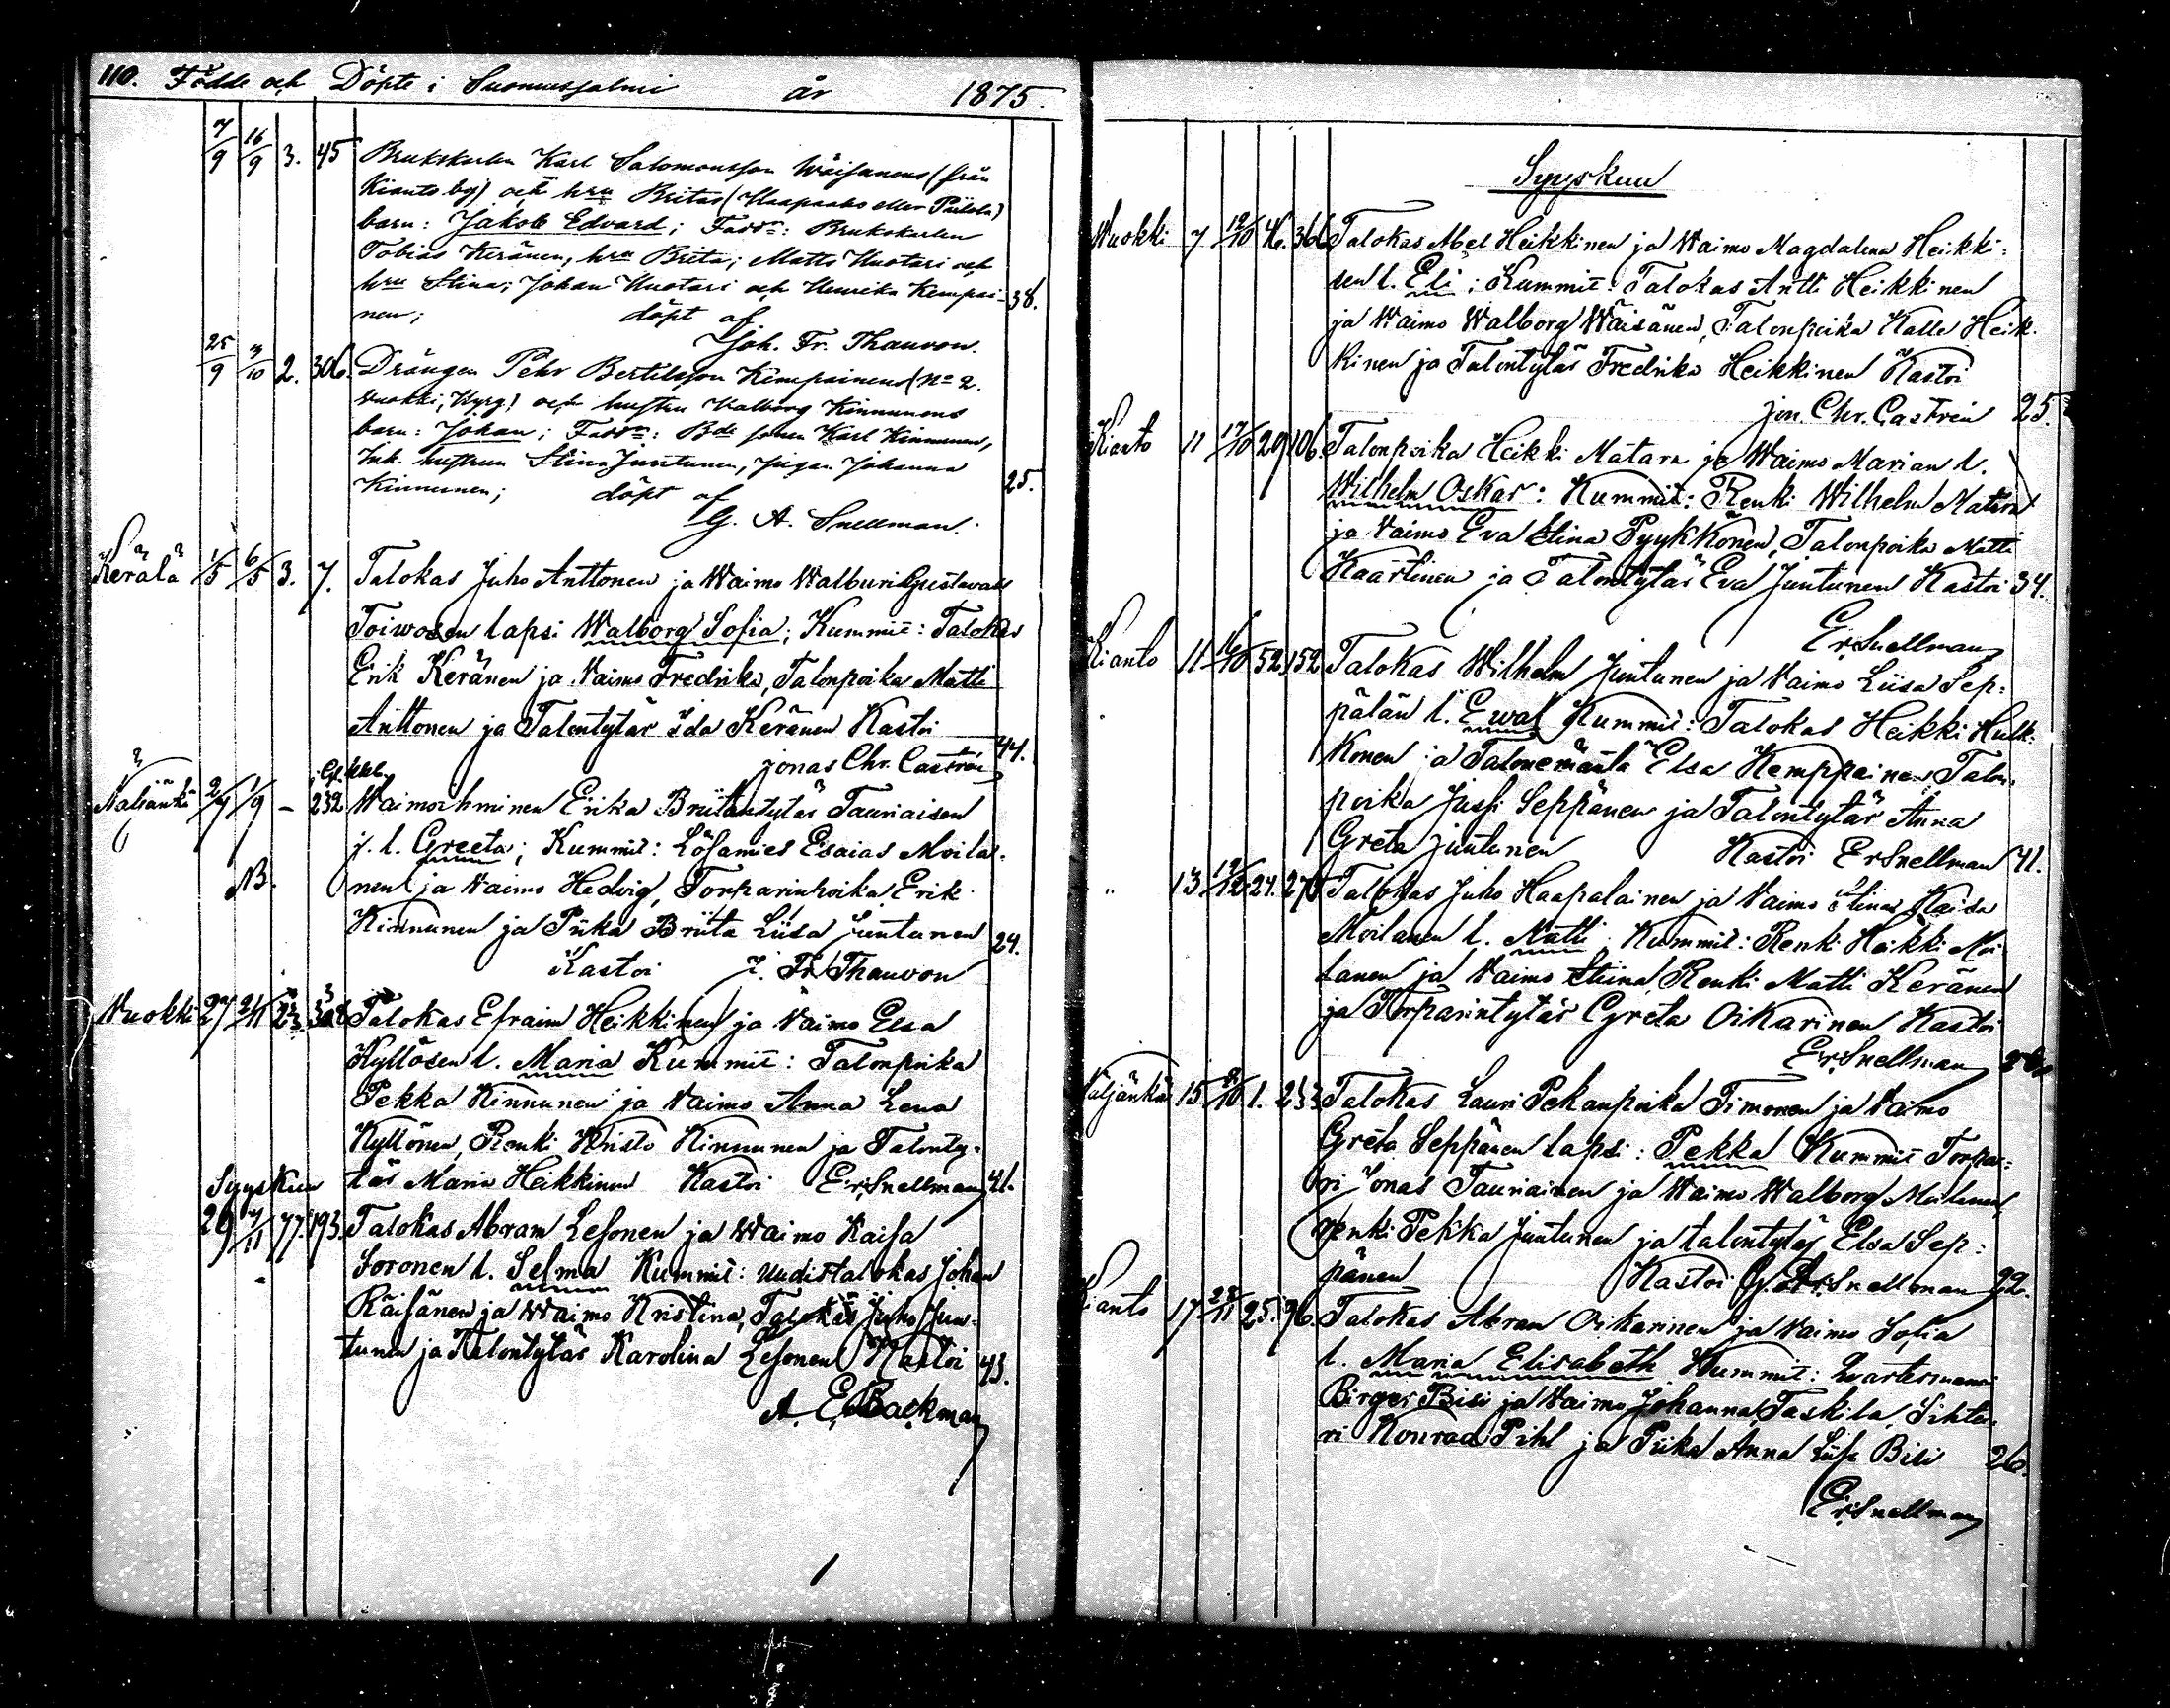 110. Födde och Döpte i Suomussalmi år 1875.
7/9 16/9 3. 45 Brukskarlen Karl Salomonsson Wäisänens (från
Kianto by) och hru Britas (Haapaaho eller Piilola)
barn: Jakob Edvard; Faddr: Brukskarlen
Tobias Keränen, hru Brita; Matts Huotari och
hru Stina; Johan Huotari och Henrika Kempai-
nen; döpt af 38.
Joh. Fr. Thauvon.
25/9 3/10 2. 306. Drängen Pehr Bertilsson Kempainens (No 2.
Vuokki, Kyrg.) och hustru Valborg Kinnunens
barn: Johan; Faddr: Bde sonen Karl Kinnunen,
Inh. hustrun Stina Juntunen, pigan Johanna
Kinnunen; döpt af 25.
G. A. Snellman.
Kerälä 1/5 6/5 3. 7. Talokas Juho Anttonen ja Waimo Walburi Gustavan
Toiwosen lapsi Walborg Sofia; Kummit: Talokas
Erik Keränen ja Vaimo Fredrika, Talonpoika Matti
Anttonen ja Talontytär Ida Keränen Kastoi
jonas Chr. Castrén 44.
Näljänkä 2/9 1/9 - 232 Waimoihminen Erika Briitantytär Tauriaisen
j. l. Greeta; Kummit: Lösamies Esaias Moila-
NB. nen ja Vaimo Hedvig, Torparinpoika Erik
Kinnunen ja Piika Briita Liisa Juntunen 24.
Kastoi J. Fr. Thauvon
Vuokki 27 2/11 23 308 Talokas Efraim Heikkinen ja Vaimo Elsa
Kyllösen l. Maria Kummit: Talonpoika
Pekka Kinnunen ja Vaimo Anna Lena
Kyllönen, Renki Kristo Kinnunen ja Talonty-
Syyskuu tär Maria Heikkinen Kastoi Er. Snellman 41.
29 7/11 77. 193. Talokas Abram Lesonen ja Waimo Kaisa
Soronen l. Selma Kummit: Uudistalokas Johan
Räisänen ja Waimo Kristina, Talokas Juho Jun-
tunen ja Talontytär Karolina Lesonen Kastoi 43.
A. E. Backman
Syyskuu
Vuokki 7 10/10 46. 366 Talokas Abel Heikkinen ja Waimo Magdalena Heikki-
sen l. Eli; Kummit: Talokas Antti Heikkinen
ja Waimo Walborg Wäisänen, Talonpoika Kalle Heik-
kinen ja Talontytär Fredrika Heikkinen Kastoi
jon. Chr. Castrén 25.
Kianto 11 17/10 29 106. Talonpoika Heikki Matara ja Waimo Marian l.
Wilhelm Oskar: Kummit: Renki Wilhelm Matara
ja Vaimo Eva Stina Pyykkönen, Talonpoika Matti
Kaartinen ja Talontytär Eva Juntunen Kastoi 34.
Er. Snellman
Kianto 11 /10 52 152 Talokas Wilhelm Juntunen ja Vaimo Liisa Sep-
pälän l. Ewal Kummit: Talokas Heikki Hulk-
konen ja Talonemäntä Elsa Kemppainen, Talon-
poika Jussi Seppänen ja Talontytär Anna
Greta Juntunen Kastoi Er Snellman 41.
" 13 12/12 24. 270 Talokas Juho Haapalainen ja Vaimo Stina Kaisa
Moilanen l. Matti, Kummit: Renki Heikki Moi-
lanen ja Vaimo Stiina, Renki Matti Keränen
ja Torparintytär Greta Oikarinen Kastoi
Er. Snellman
Näljänkä 15 /10 1. 233 Talokas Lauri Pekanpoika Timonen ja Vaimo
Greta Seppänen lapsi: Pekka Kummit Torpa-
ri Jonas Tauriainen ja Waimo Walborg Moilanen,
renki Pekka Juntunen ja talontytär Elsa Sep-
pänen Kastoi G. A. Snellman 22.
Kianto 17. 28/11 25. 96. Talokas Abram Oikarinen ja Vaimo Sofia
l. Maria Elisabeth Kummit: Kvartermanni
Birger Bisi ja Vaimo Johanna Taskila, Sihtee-
ri Konrad Pihl ja Piika Anna Liisa Bisi 26.
Er. Snellman